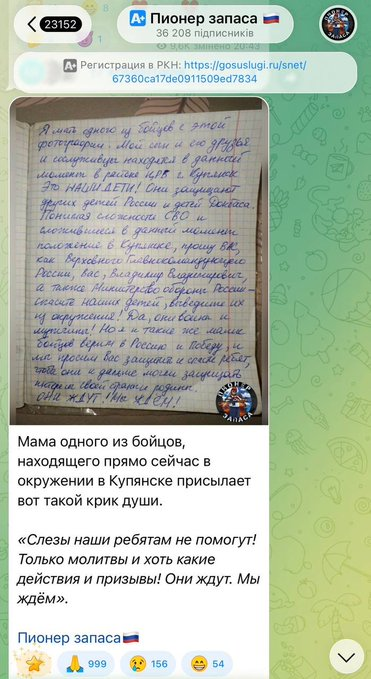 23152
А+ Пионер запаса 🇷🇺
36 208 підписників
9,6K змінено 20:43
8
1
А+ Регистрация в РКН: https://gosuslugi.ru/snet/
67360ca17de0911509ed7834
Я мать одного из бойцов с этой
фотографии. Мой сын и его друзья
и сослуживцы находятся в данный
момент в районе ЦРБ г. Купянск
Это НАШИ ДЕТИ! Они защищают
других детей России и детей Донбаса.
Понимая сложность СВО и
сложившееся в данный момент
положение в Купянске, прошу ВАС,
как Верховного Главнокомандующего
России, вас, Владимир Владимирович,
а также Министерство обороны России –
спасите наших детей, выведите их
из окружения! Да, они воины и
мужчины! Но я и такие же мамы
бойцов верим в Россию и Победу, и
мы просим вас защитите ребят,
чтоб они и дальше могли защищать
своей родины.
ОНИ ЖДУТ! МЫ ЖДЕМ!
ПИОНЕР
ЗАПАСА
Мама одного из бойцов,
находящего прямо сейчас в
окружении в Купянске присылает
вот такой крик души.
«Слезы наши ребятам не помогут!
Только молитвы и хоть какие
действия и призывы! Они ждут. Мы
ждём».
Пионер запаса🇷🇺
999 156 54